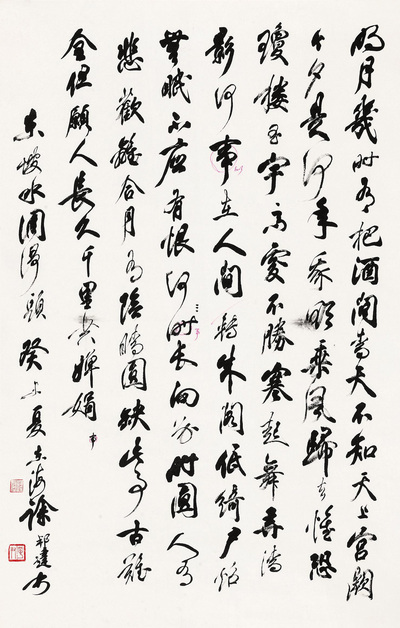 明月幾時有把酒問青天不知天上宮闕
今夕是何年我欲乘風歸去惟恐
瓊樓玉宇高處不勝寒起舞弄清
影何事在人間轉朱閣低綺戶照
無眠不應有恨何時長向別時圓人有
悲歡離合月有陰晴圓缺此事古難
全但願人長久千里共嬋娟
東坡水調歌頭癸未夏東海徐